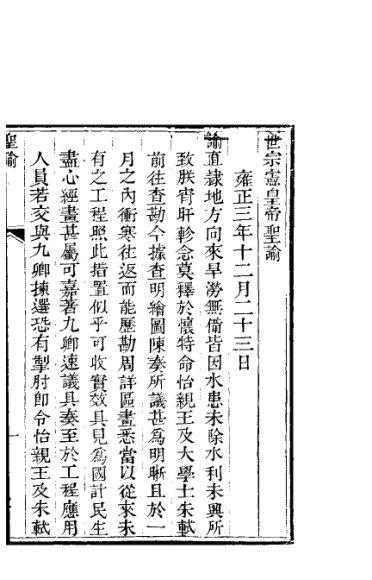 世宗憲皇帝聖諭
雍正三年十二月二十三日
諭直隸地方向來旱澇無備皆因水患未除水利未興所
致朕宵旰軫念莫釋於懷特命怡親王及大學士朱軾
前往查勘今據查明繪圖陳奏所議甚爲明晰且於一
月之內衝寒往返而能歷勘周詳區畫悉當以從來未
有之工程照此措置似乎可收實效具見爲國計民生
盡心經畫甚屬可嘉著九卿速議具奏至於工程應用
人員若交與九卿揀選恐有掣肘卽令怡親王及朱軾
聖諭
一